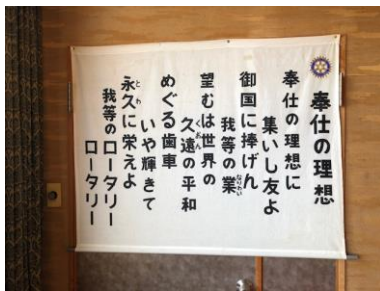 奉仕の理想
奉仕の理想に
集いし友よ
御国に捧げん
我等の業
なりわい
望むは世界の
久遠の平和
くおん
めぐる歯車
いや輝きて
永久に栄えよ
とわ
我等のロータリー
ロータリー